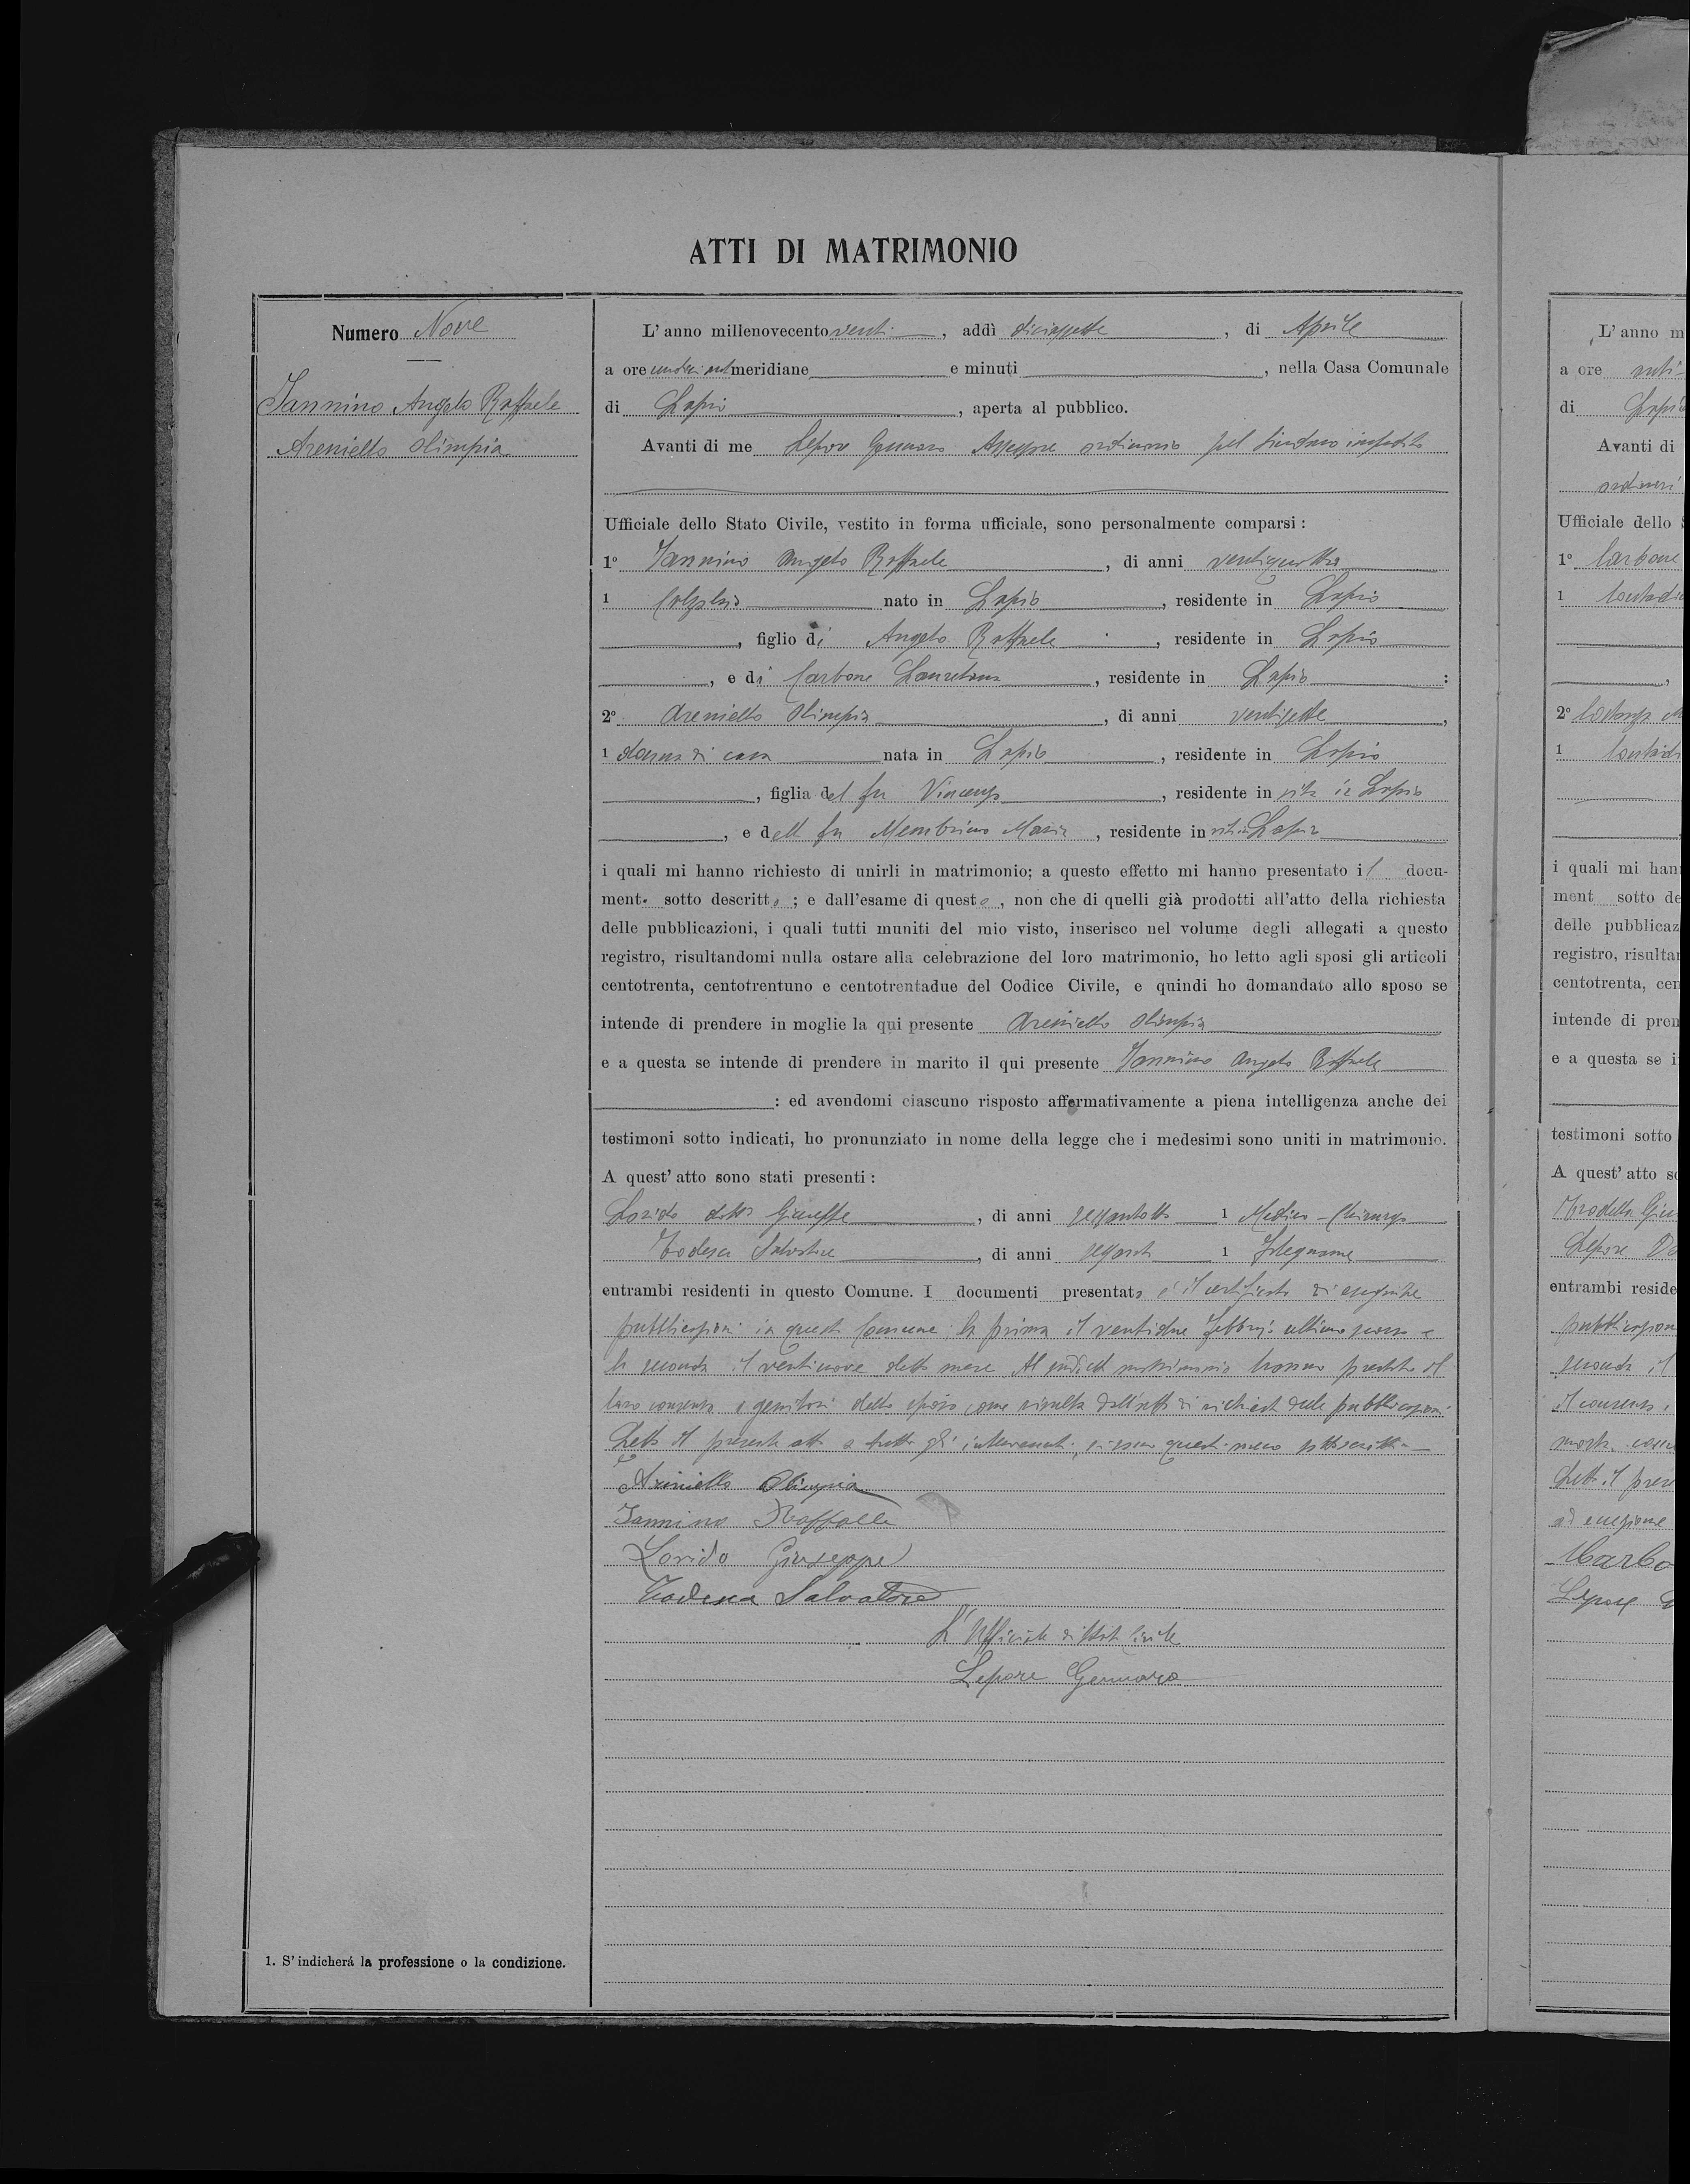 ATTI DI MATRIMONIO
Numero Nove
Iannino Angelo Raffaele
Areniello Olimpia
L'anno millenovecento venti, addì diciassette, di Aprile
a ore undici antmeridiane e minuti, nella Casa Comunale
di Lapio, aperta al pubblico.
Avanti di me Lepore Gennaro Assessore ordinario pel Sindaco impedito
Ufficiale dello Stato Civile, vestito in forma ufficiale, sono personalmente comparsi:
1° Iannino Angelo Raffaele, di anni ventiquattro
1 Calzolaio nato in Lapio, residente in Lapio
, figlio di Angelo Raffaele, residente in Lapio
, e di Carbone Lauretana, residente in Lapio:
2° Areniello Olimpia, di anni ventisette,
1 donna di casa nata in Lapio, residente in Lapio
, figlia del fu Vincenzo, residente in vita in Lapio
, e dell fu Membrino Maria, residente in vita in Lapio
i quali mi hanno richiesto di unirli in matrimonio; a questo effetto mi hanno presentato il docu-
mento sotto descritto; e dall'esame di questo, non che di quelli già prodotti all'atto della richiesta
delle pubblicazioni, i quali tutti muniti del mio visto, inserisco nel volume degli allegati a questo
registro, risultandomi nulla ostare alla celebrazione del loro matrimonio, ho letto agli sposi gli articoli
centotrenta, centotrentuno e centotrentadue del Codice Civile, e quindi ho domandato allo sposo se
intende di prendere in moglie la qui presente Areniello Olimpia
e a questa se intende di prendere in marito il qui presente Iannino Angelo Raffaele
: ed avendomi ciascuno risposto affermativamente a piena intelligenza anche dei
testimoni sotto indicati, ho pronunziato in nome della legge che i medesimi sono uniti in matrimonio.
A quest'atto sono stati presenti:
Lorido dottor Giuseppe, di anni sessantotto 1 Medico-Chirurgo
Todesca Salvatore, di anni sessanta 1 Falegname
entrambi residenti in questo Comune. I documenti presentato è il certificato di eseguite
pubblicazioni in questo Comune la prima il ventidue Febbraio ultimo scorso e
la seconda il ventinove detto mese Al suddetto matrimonio hanno prestato il
loro consenso i genitori dello sposo come risulta dall'atto di richiesta delle pubblicazioni
Letto il presente atto a tutti gl'intervenuti, si sono questi meco sottoscritti
Areniello Olimpia
Iannino Raffaele
Lorido Giuseppe
Todesca Salvatore
L'Ufficiale di Stato Civile
Lepore Gennaro
1. S'indicherá la professione o la condizione.
L'anno m
a ore
di Lapio
Avanti di
ordinari
Ufficiale dello
1° Carbone
1 Contadi
2°
1 Contadi
i quali mi han
ment sotto de
delle pubblicaz
registro, risultan
centotrenta, cen
intende di pren
e a questa se i
testimoni sotto
A quest'atto s
Lepore
entrambi reside
pubblicazion
seconda il
il consenso
Letto il pres
ad eccezione
Carbo
Lepore